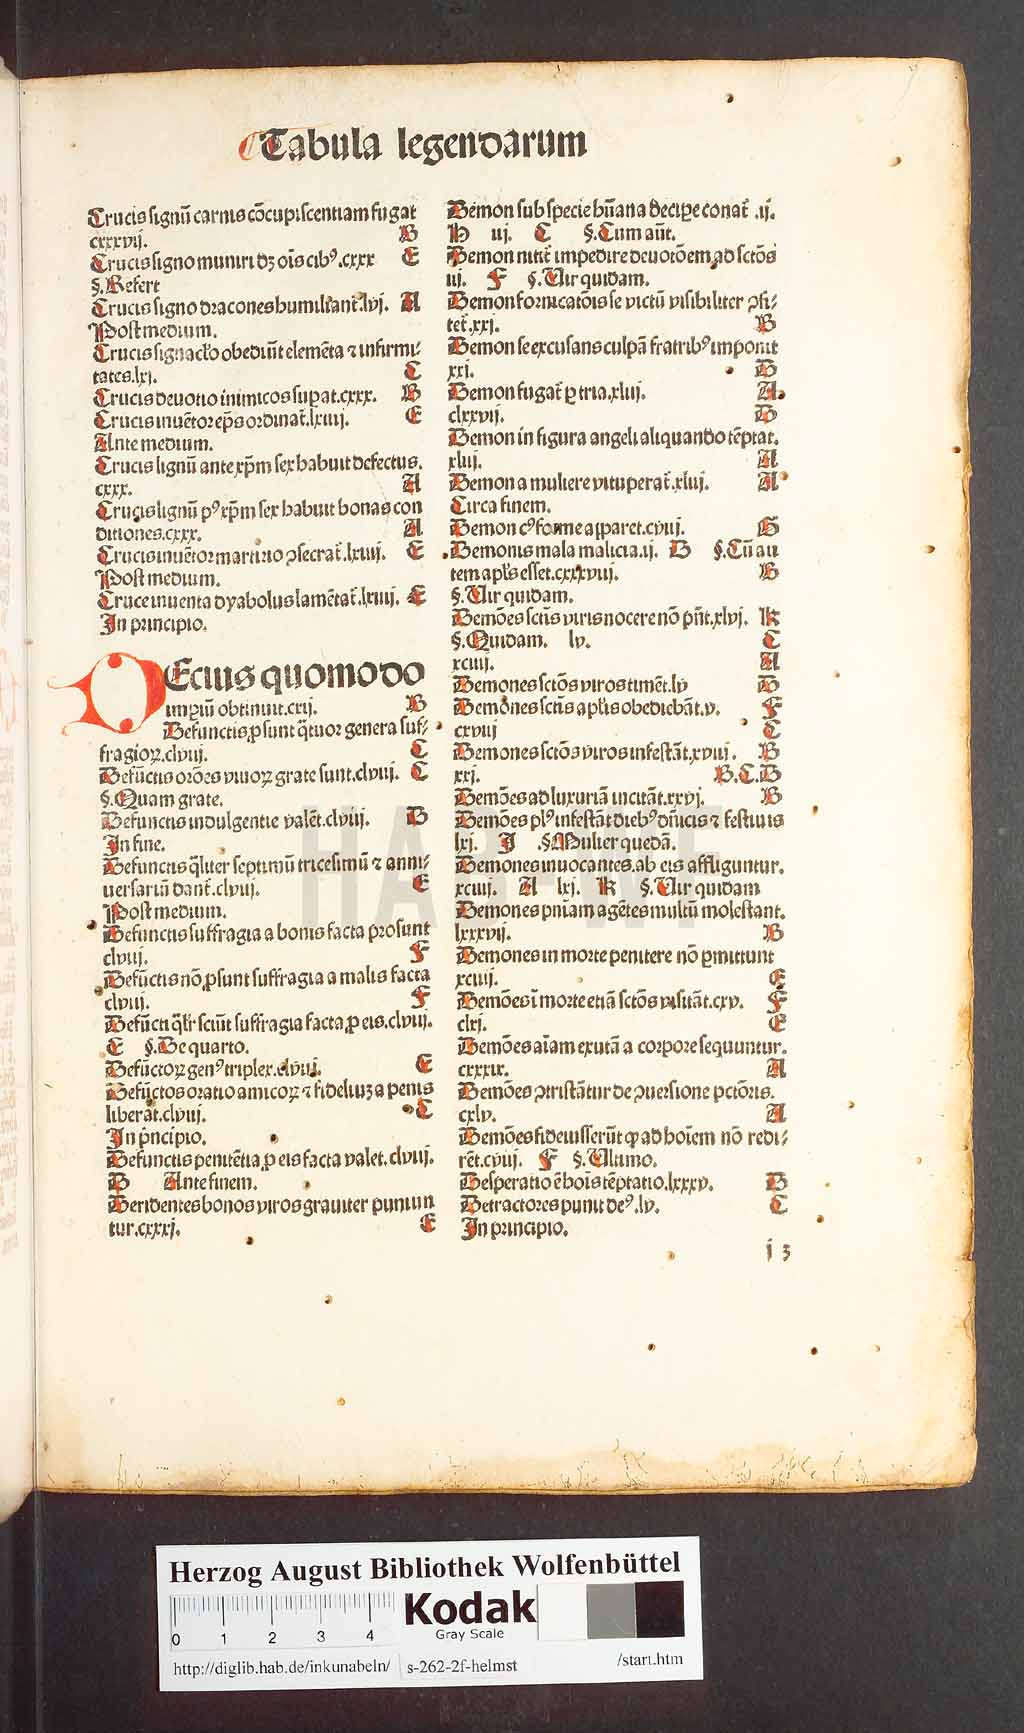 Tabula legendarum
Crucis signū carnis cōcupiscentiam fugat
cxxxvij. B
Crucis signo muniri dꝫ oīs cibꝰ.cxxx E
§. Refert
Crucis signo dracones humiliant̄.lvj. A
Post medium.
Crucis signac̄lo obediūt elemēta ⁊ infirmi⸗
tates.lxj. C
Crucis deuotio inimicos suꝑat.cxxx. B
Crucis inuētor ep̄s ordinat̄.lxiiij. E
Ante medium.
Crucis lignū ante xp̄m sex habuit defectus.
cxxx. A
Crucis lignū pꝰ xp̄m sex habuit bonas con
ditiones.cxxx. A
Crucis inuētor martirio ꝯsecrat̄.lxiiij. E
Post medium.
Cruce inuenta dyabolus lamētat̄.lxiiij. E
In principio.
DEcius quomodo
imꝑiū obtinuit.cxij. B
Defunctis ꝓsunt q̄tuor genera suf⸗
fragioꝝ.clviij. C
Defūctis orōes viuoꝝ grate sunt.clviij. C
§.Quam grate.
Defunctis indulgentie valēt.clviij. B
In fine.
Defunctis q̄liter septimū tricesimū ⁊ anni⸗
uersariū dant̄.clviij. E
Post medium.
Defunctis suffragia a bonis facta prosunt
clviij. F
Defūctis nō ꝓsunt suffragia a malis facta
clviij. F
Defūcti q̄lr̄ sciūt suffragia facta ꝓ eis.clviij.
E §.De quarto.
Defūctoꝝ genꝰ triplex.clviij. E
Defūctos oratio amicoꝝ ⁊ fideliuꝫ a penis
liberat.clviij. C
In pn̄cipio.
Defunctis penitētia ꝓ eis facta valet.clviij.
D Ante finem.
Deridentes bonos viros grauiter puniun
tur.cxxxj. E
Demon sub specie hūana decipe conat̄.ij.
H iij. C §.Cum aūt.
Demon nitit̄ impedire deuotōem ad sctōs
iij. F §.Uir quidam.
Demon fornicatōis se victū visibiliter ꝯfi⸗
tet̄.xxj. B
Demon se excusans culpā fratribꝰ imponit
xxj. D
Demon fugat̄ ꝑ tria.xliij. A
clxxvij. D
Demon in figura angeli aliquando tēptat.
xliij. A
Demon a muliere vituperat̄.xliij. A
Circa finem.
Demon cꝰ forme apparet.cviij. G
Demonis mala malicia.ij. B §.Cū au
tem apl̄s esset.cxxxviij. B
§.Uir quidam.
Demōes sctīs viris nocere nō pn̄t.xlvj. K
§.Quidam. lv. C
xciiij. A
Demones sctōs viros timēt.lv D
Demones sctīs aplīs obediebāt.v. F
cxviij C
Demones sctōs viros infestāt.xviij. B
xxj. B.C.D
Demōes ad luxuriā incitāt.xxvj. B
Demōes plꝰ infestāt diebꝰ dn̄icis ⁊ festiuis
lxj. I §.Mulier quedā.
Demones inuocantes.ab eis affliguntur.
xciiij. A lxj. K §.Uir quidam
Demones pn̄iam agētes multū molestant.
lxxxvij. B
Demones in morte penitere nō ꝑmittunt
xciiij. E
Demōes ī morte etiā sctōs visitāt.cxv. F
clxj. E
Demōes aīam exutā a corpore sequuntur.
cxxxix. A
Demōes ꝯtristātur de ꝯuersione pctōris.
cxlv. A
Demōes fideiusserūt ꝙ ad hoīem nō redi⸗
rēt.cviij. F §.Ultimo.
Desperatio ē hoīs tēptatio.lxxxv. D
Detractores punit deꝰ.lv. C
In principio.
j 3
HAB WF
Herzog August Bibliothek Wolfenbüttel
Kodak
Gray Scale
0 1 2 3 4
http://diglib.hab.de/inkunabeln/ s-262-2f-helmst /start.htm